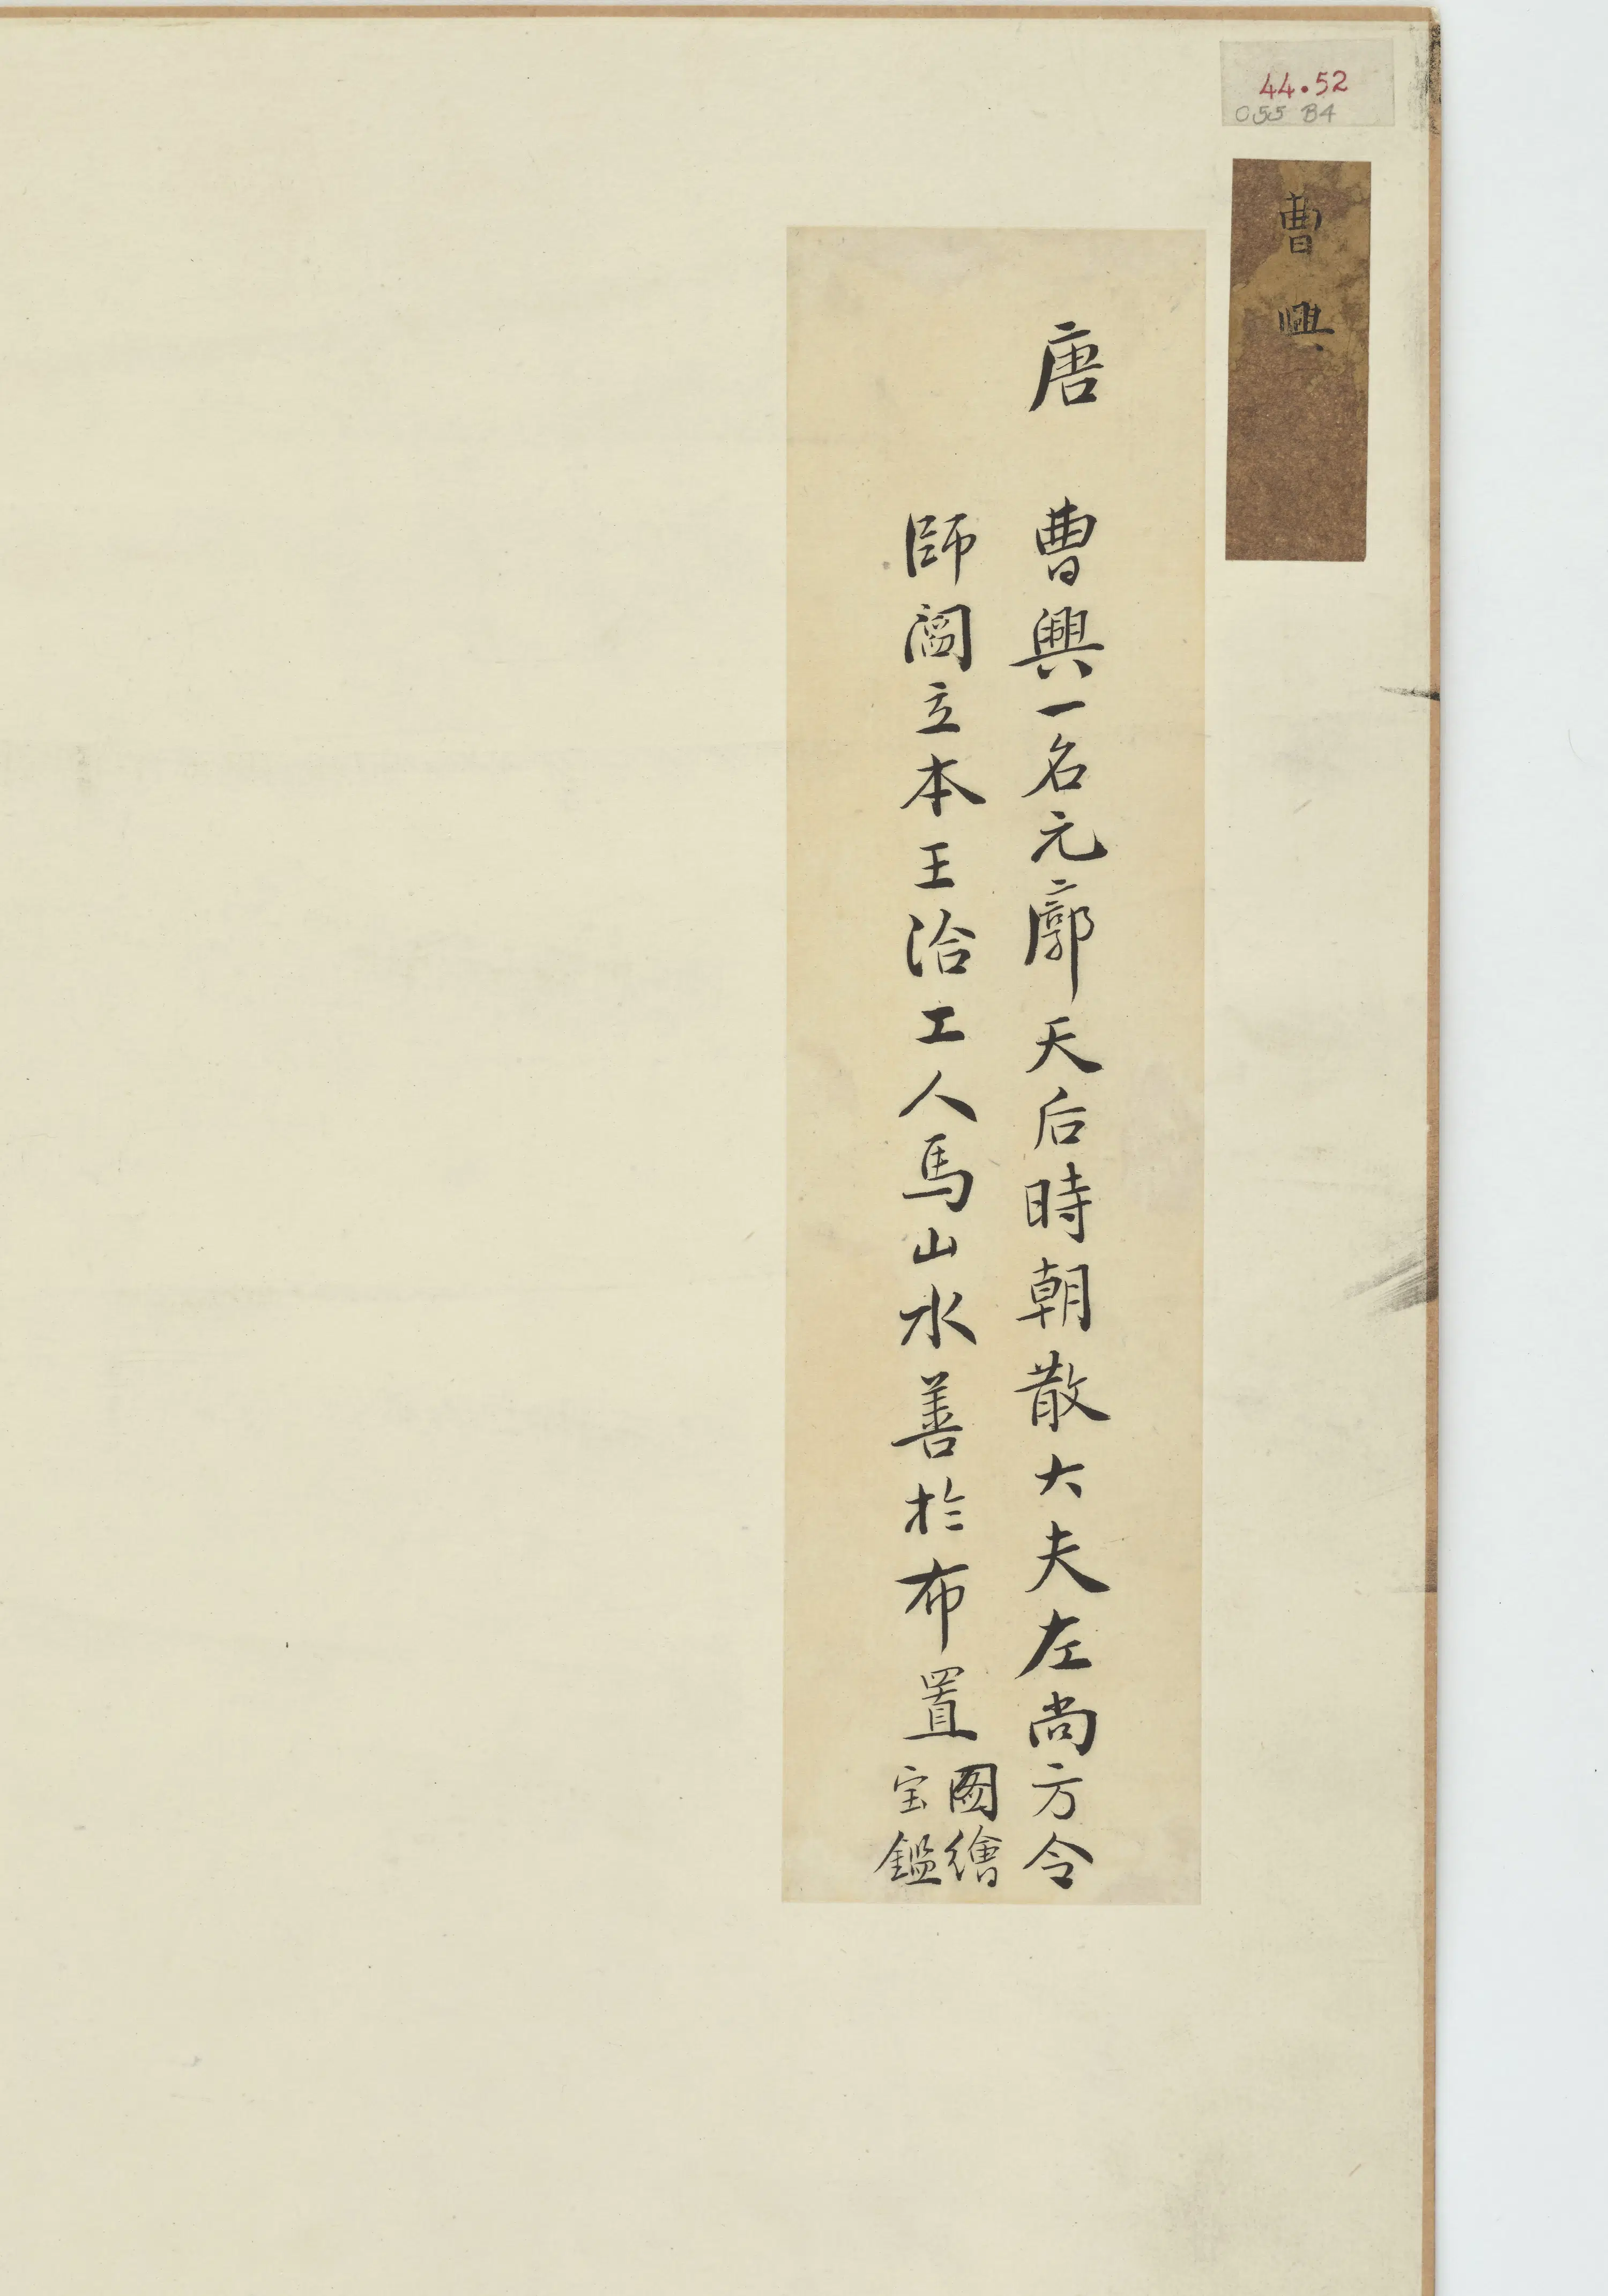 44.52
055 B4
曹興
唐 曹興一名元廓天后時朝散大夫左尚方令
師閻立本王洽工人馬山水善於布置
圖繪
宝鑑